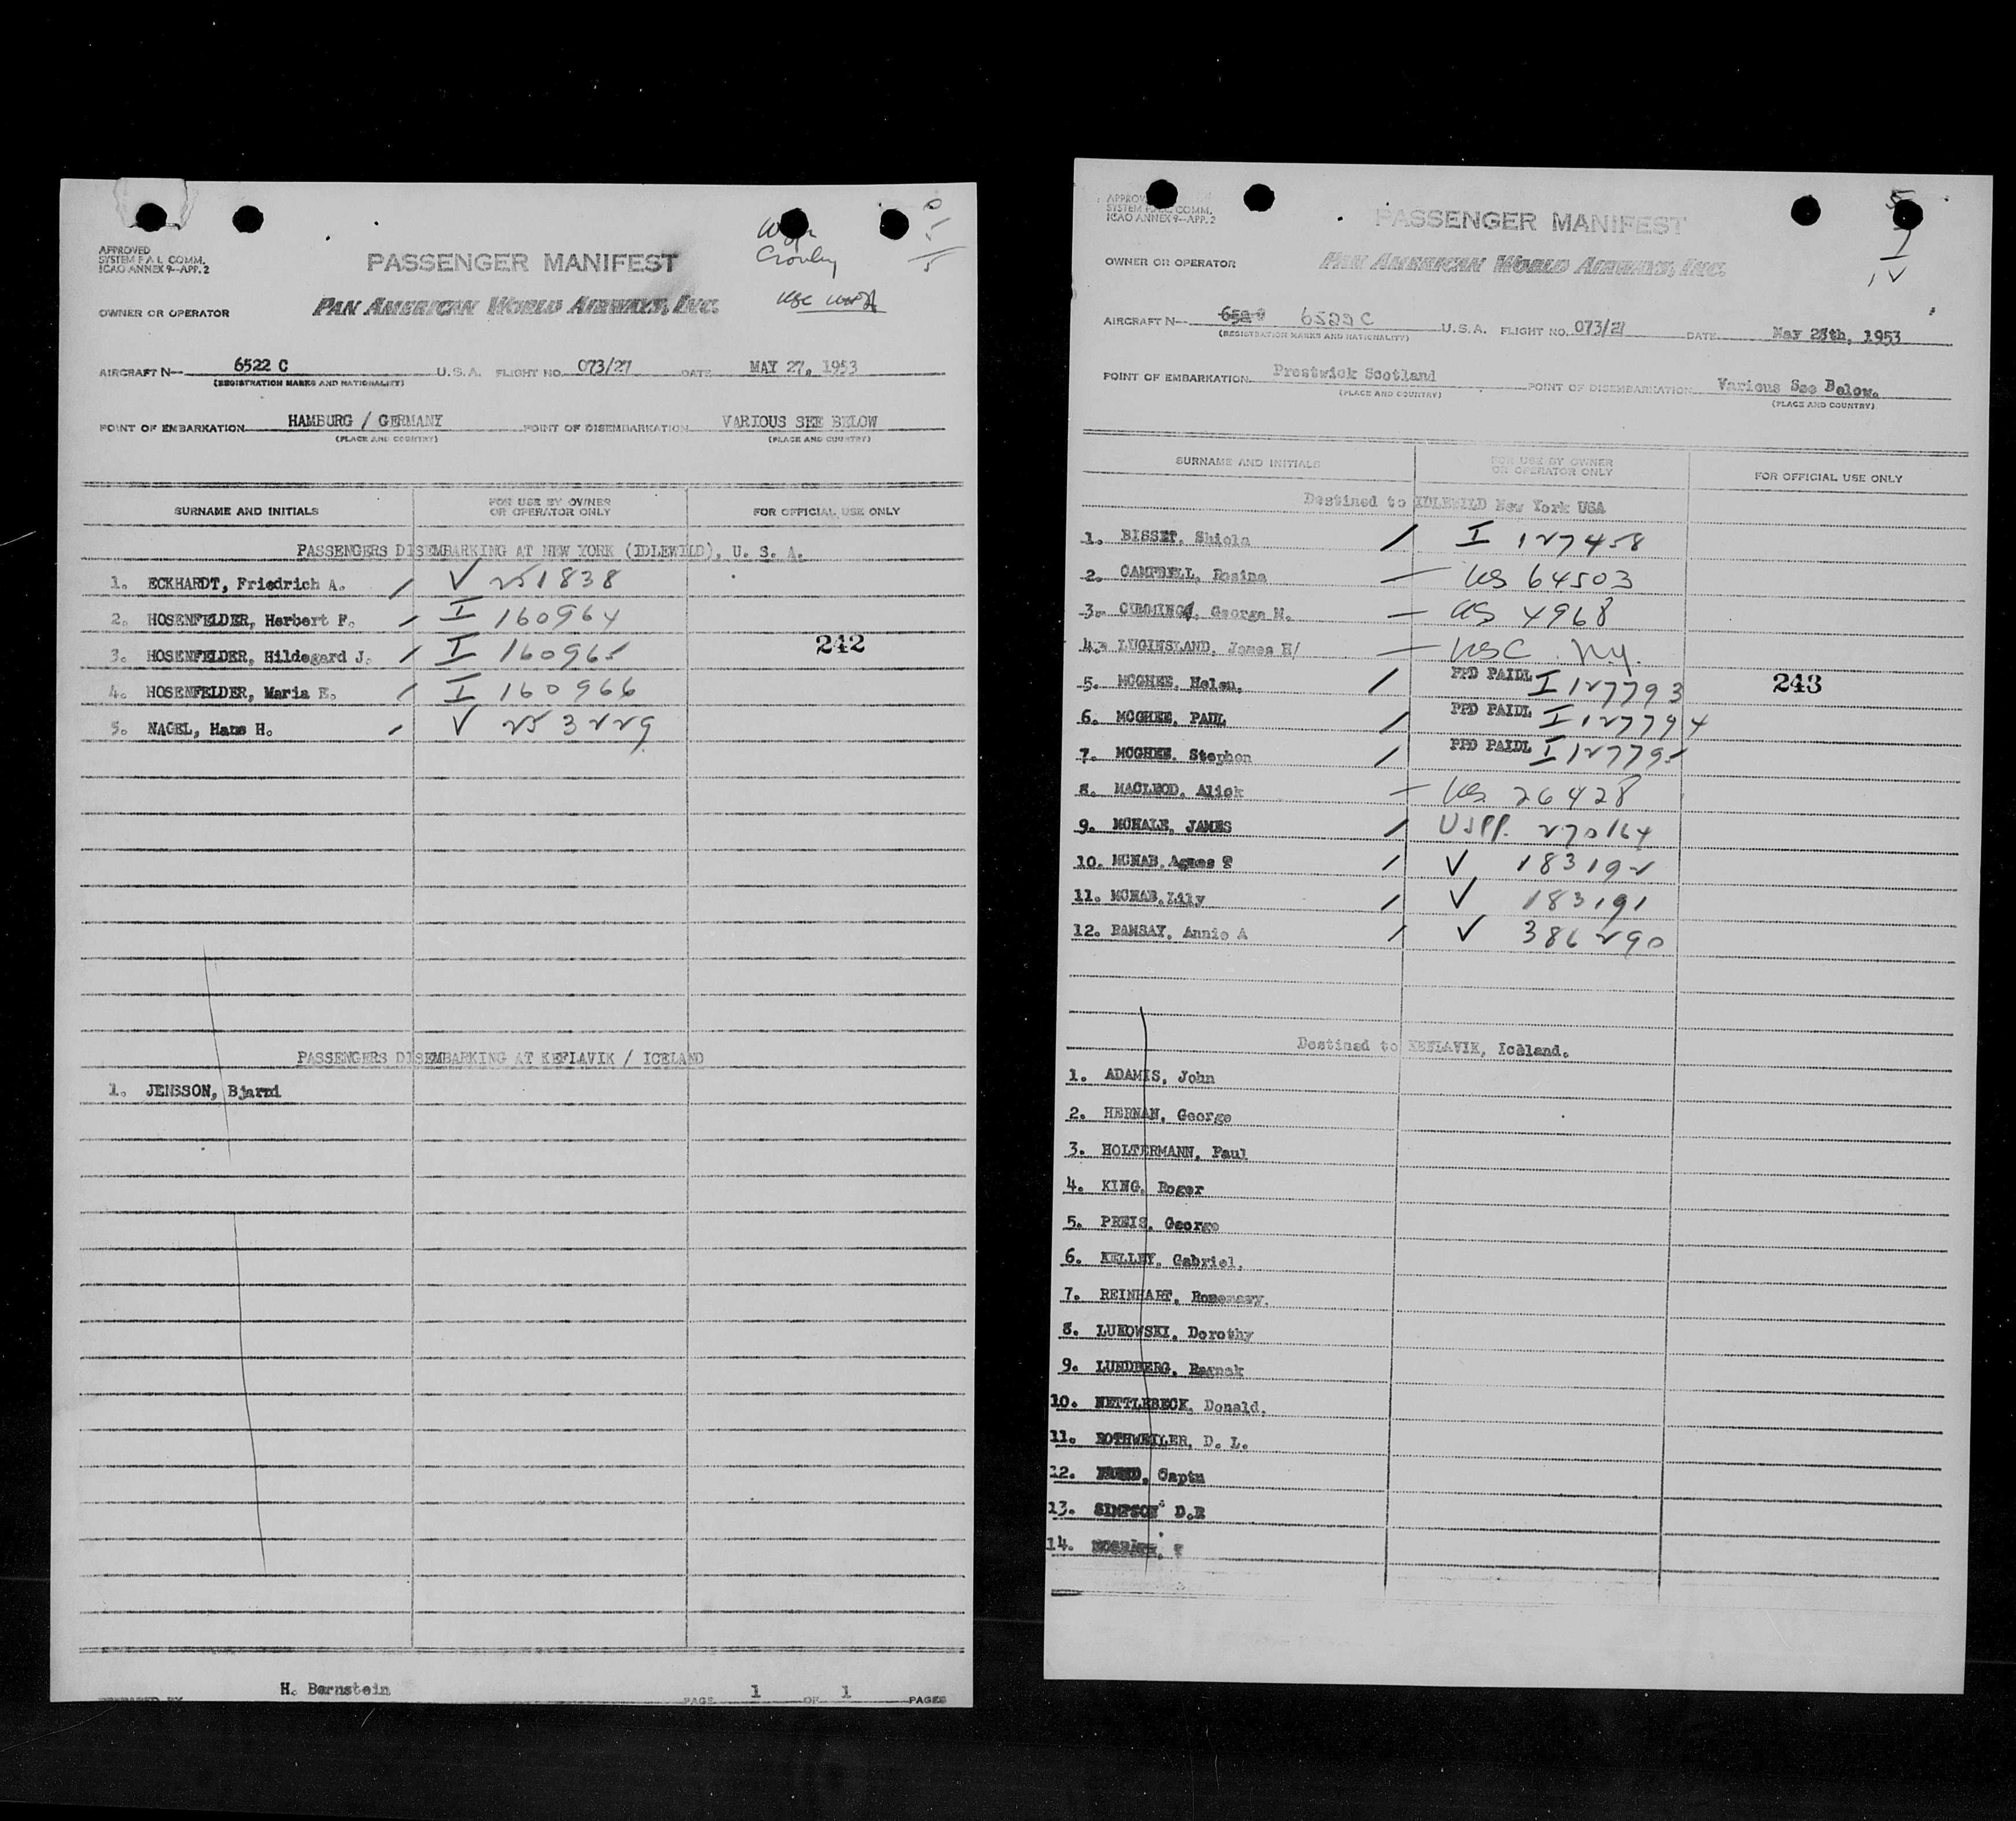 APPROVED
SYSTEM F A L COMM.
ICAO ANNEX 9--APP. 2
PASSENGER MANIFEST
OWNER OR OPERATOR
PAN AMERICAN WORLD AIRWAYS, INC.
AIRCRAFT N-- 6522 C U.S.A. FLIGHT NO. 073/27 DATE MAY 27, 1953
(REGISTRATION MARKS AND NATIONALITY)
POINT OF EMBARKATION HAMBURG / GERMANY POINT OF DISEMBARKATION VARIOUS SEE BELOW
(PLACE AND COUNTRY) (PLACE AND COUNTRY)
SURNAME AND INITIALS FOR USE BY OWNER OR OPERATOR ONLY FOR OFFICIAL USE ONLY
PASSENGERS DISEMBARKING AT NEW YORK (IDLEWILD), U. S. A.
1. ECKHARDT, Friedrich A. / V 251838
2. HOSENFELDER, Herbert F. / I 160964
3. HOSENFELDER, Hildegard J. / I 160965 242
4. HOSENFELDER, Maria E. / I 160966
5. NAGEL, Hans H. / V 253229
PASSENGERS DISEMBARKING AT KEFLAVIK / ICELAND
1. JENSSON, Bjarni
H. Bernstein
PREPARED BY PAGE 1 OF 1 PAGES
APPROVED
SYSTEM F A L COMM.
ICAO ANNEX 9--APP. 2
PASSENGER MANIFEST
OWNER OR OPERATOR
PAN AMERICAN WORLD AIRWAYS, INC.
AIRCRAFT N-- 6522 C U.S.A. FLIGHT NO. 073/27 DATE May 28th, 1953
(REGISTRATION MARKS AND NATIONALITY)
POINT OF EMBARKATION Prestwick Scotland POINT OF DISEMBARKATION Various See Below.
(PLACE AND COUNTRY) (PLACE AND COUNTRY)
SURNAME AND INITIALS FOR USE BY OWNER OR OPERATOR ONLY FOR OFFICIAL USE ONLY
Destined to IDLEWILD New York USA
1. BISSET, Shiela / I 127458
2. CAMPBELL, Rosina — US 64503
3. CUMMING, George M. — US 4968
4. LUGINSLAND, James H/ — USC. NY.
5. MCGHEE, Helen, / PPD PAIDL I 127793 243
6. MCGHEE, PAUL / PPD PAIDL I 127794
7. MCGHEE, Stephen / PPD PAIDL I 127795
8. MACLEOD, Alick — US 26428
9. MCHALE, JAMES / USPP. 270164
10. MCNAB, Agnes ? / V 183192
11. MCNAB, Lily / V 183191
12. RAMSAY, Annie A / V 386290
Destined to KEFLAVIK, Iceland.
1. ADAMIS, John
2. HERNAN, George
3. HOLTERMANN, Paul
4. KING, Roger
5. PREIS, George
6. KELLEY, Gabriel.
7. REINHART, Rosemary.
8. LUKOWSKI, Dorothy
9. LUNDBERG, Ragnak
10. NETTLEBECK, Donald.
11. ROTHWEILER, D. L.
12. Captn
13. SIMPSON D.R
14.